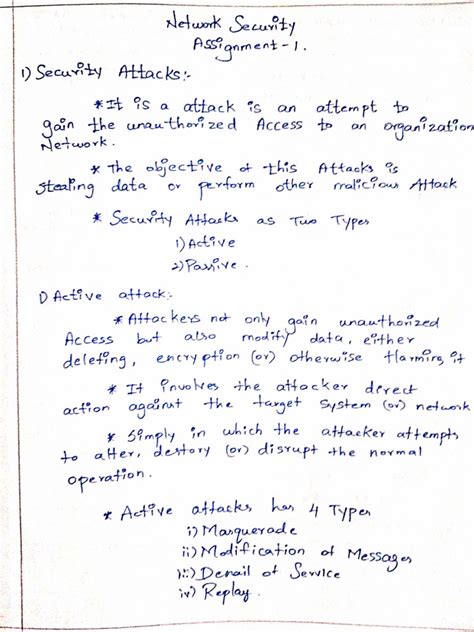 Network Security
Assignment-1.
1) Security Attacks:-
* It is a attack is an attempt to
gain the unauthorized Access to an organization
Network.
* The objective of this Attacks is
stealing data or perform other malicious Attack
* Security Attacks as Two Types
1) Active
2) Passive.
1) Active attack:-
* Attackers not only gain unauthorized
Access but also modify data, either
deleting, encryption (or) otherwise Harming it
* It involves the attacker direct
action against the target System (or) network
* Simply in which the attacker attempts
to alter, destory (or) disrupt the normal
operation.
* Active attacks has 4 Types
i) Masquerade
ii) Modification of Messages
iii) Denail of Service
iv) Replay.